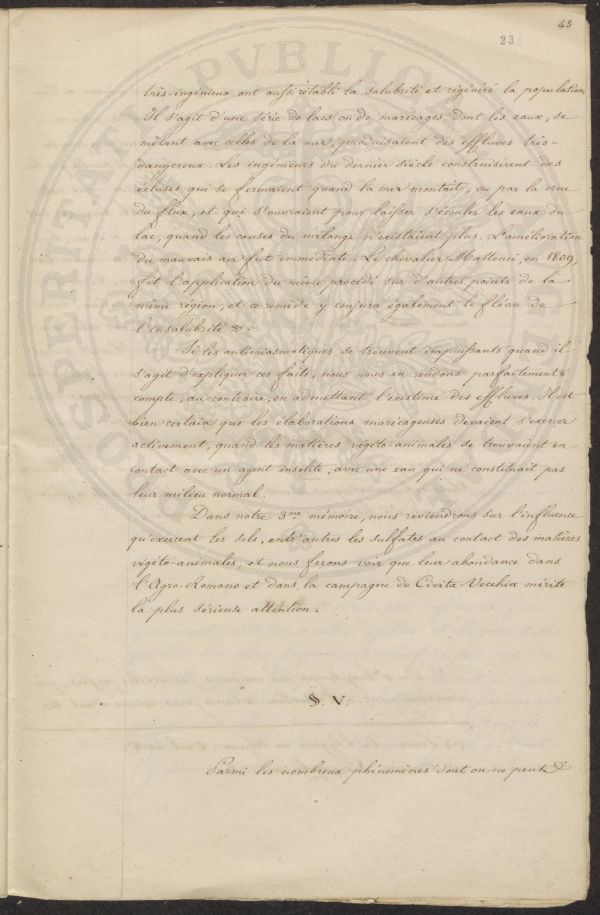 43
23
très-ingénieux ont aussi rétabli la salubrité et régénéré la population.
Il s'agit d'une série de lacs ou de marécages dont les eaux, se
mêlant avec celles de la mer, produisaient des effluves très-
dangereux. Les ingénieurs du dernier siècle construisirent des
écluses qui se fermaient quand la mer montait, ou par la crue
du flux, et qui s'ouvraient pour laisser s'écouler les eaux du
lac, quand les causes du mélange n'existaient plus. L'amélioration
du mauvais air fut immédiate. Le chevalier Matteuci, en 1809,
fit l'application du même procédé sur d'autres points de la
même région, et ce remède y conjura également le fléau de
l'insalubrité
Si les antimiasmatiques se trouvent impuissants quand il
s'agit d'expliquer ces faits, nous nous en rendons parfaitement
compte, au contraire, en admettant l'existence des effluves. Il est
bien certain que les élaborations marécageuses devaient s'exercer
activement, quand les matières végéto-animales se trouvaient en
contact avec un agent insolite, avec une eau qui ne constituait pas
leur milieu normal.
Dans notre 3me mémoire, nous reviendrons sur l'influence
qu'exercent les sels, entr'autres les sulfates au contact des matières
végéto-animales, et nous ferons voir que leur abondance dans
l'Agro-Romano et dans la campagne de Civita-Vecchia mérite
la plus sérieuse attention.
§. V.
Parmi les nombreux phénomènes dont on ne peut
PROSPERITATI PVBLICAE